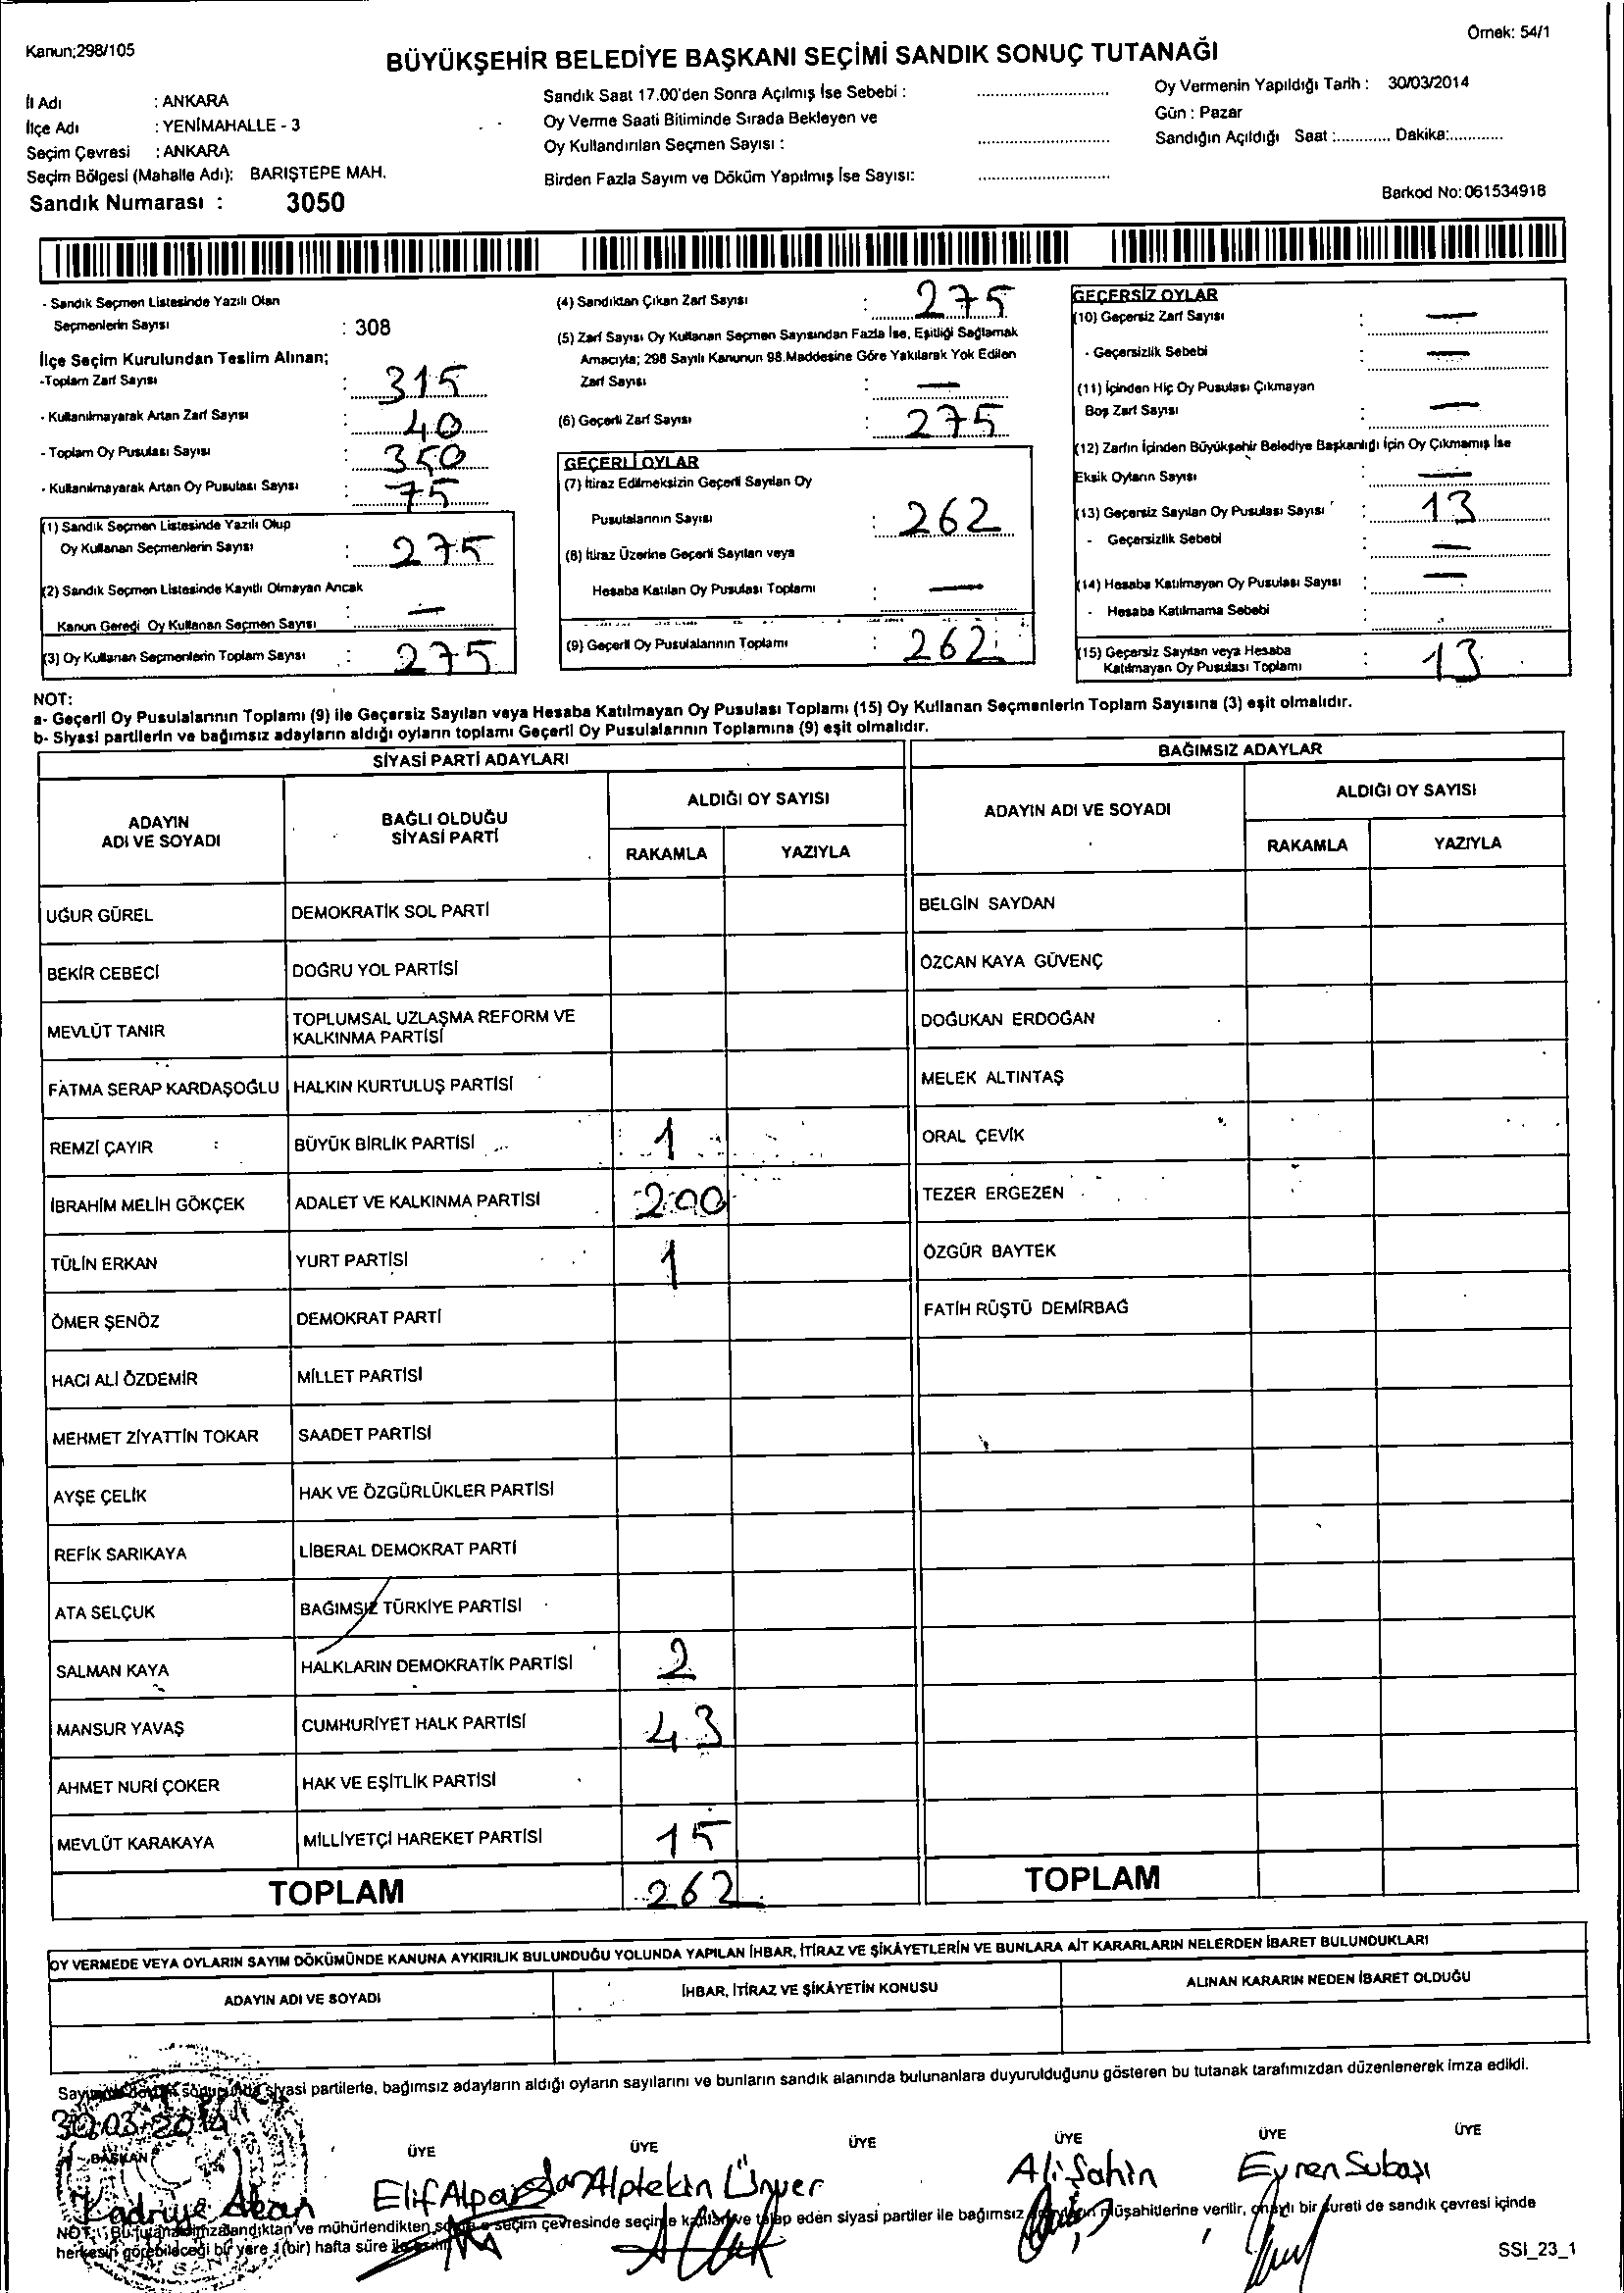 Kanun;298/105
Örnek: 54/1
BÜYÜKŞEHİR BELEDİYE BAŞKANI SEÇİMİ SANDIK SONUÇ TUTANAĞI
İl Adı : ANKARA
İlçe Adı : YENİMAHALLE - 3
Seçim Çevresi : ANKARA
Seçim Bölgesi (Mahalle Adı): BARIŞTEPE MAH.
Sandık Numarası : 3050
Sandık Saat 17.00'den Sonra Açılmış İse Sebebi :
Oy Verme Saati Bitiminde Sırada Bekleyen ve
Oy Kullandırılan Seçmen Sayısı :
Birden Fazla Sayım ve Döküm Yapılmış İse Sayısı:
Oy Vermenin Yapıldığı Tarih : 30/03/2014
Gün : Pazar
Sandığın Açıldığı Saat :............ Dakika:............
Barkod No: 061534918
- Sandık Seçmen Listesinde Yazılı Olan
Seçmenlerin Sayısı : 308
İlçe Seçim Kurulundan Teslim Alınan;
-Toplam Zarf Sayısı : 315
- Kullanılmayarak Artan Zarf Sayısı : 40
- Toplam Oy Pusulası Sayısı : 350
- Kullanılmayarak Artan Oy Pusulası Sayısı : 75
(1) Sandık Seçmen Listesinde Yazılı Olup
Oy Kullanan Seçmenlerin Sayısı : 275
(2) Sandık Seçmen Listesinde Kayıtlı Olmayan Ancak
Kanun Gereği Oy Kullanan Seçmen Sayısı : —
(3) Oy Kullanan Seçmenlerin Toplam Sayısı : 275
(4) Sandıktan Çıkan Zarf Sayısı : 275
(5) Zarf Sayısı Oy Kullanan Seçmen Sayısından Fazla İse, Eşitliği Sağlamak
Amacıyla; 298 Sayılı Kanunun 98.Maddesine Göre Yakılarak Yok Edilen
Zarf Sayısı : —
(6) Geçerli Zarf Sayısı : 275
GEÇERLİ OYLAR
(7) İtiraz Edilmeksizin Geçerli Sayılan Oy
Pusulalarının Sayısı : 262
(8) İtiraz Üzerine Geçerli Sayılan veya
Hesaba Katılan Oy Pusulası Toplamı : —
(9) Geçerli Oy Pusulalarının Toplamı : 262
GEÇERSİZ OYLAR
(10) Geçersiz Zarf Sayısı : —
- Geçersizlik Sebebi : —
(11) İçinden Hiç Oy Pusulası Çıkmayan
Boş Zarf Sayısı : —
(12) Zarfın İçinden Büyükşehir Belediye Başkanlığı İçin Oy Çıkmamış İse
Eksik Oyların Sayısı : —
(13) Geçersiz Sayılan Oy Pusulası Sayısı : 13
- Geçersizlik Sebebi : —
(14) Hesaba Katılmayan Oy Pusulası Sayısı : —
- Hesaba Katılmama Sebebi :
(15) Geçersiz Sayılan veya Hesaba
Katılmayan Oy Pusulası Toplamı : 13
NOT:
a- Geçerli Oy Pusulalarının Toplamı (9) ile Geçersiz Sayılan veya Hesaba Katılmayan Oy Pusulası Toplamı (15) Oy Kullanan Seçmenlerin Toplam Sayısına (3) eşit olmalıdır.
b- Siyasi partilerin ve bağımsız adayların aldığı oyların toplamı Geçerli Oy Pusulalarının Toplamına (9) eşit olmalıdır.
SİYASİ PARTİ ADAYLARI
ADAYIN
ADI VE SOYADI
BAĞLI OLDUĞU
SİYASİ PARTİ
ALDIĞI OY SAYISI
RAKAMLA YAZIYLA
UĞUR GÜREL DEMOKRATİK SOL PARTİ
BEKİR CEBECİ DOĞRU YOL PARTİSİ
MEVLÜT TANIR TOPLUMSAL UZLAŞMA REFORM VE
KALKINMA PARTİSİ
FATMA SERAP KARDAŞOĞLU HALKIN KURTULUŞ PARTİSİ
REMZİ ÇAYIR BÜYÜK BİRLİK PARTİSİ 1
İBRAHİM MELİH GÖKÇEK ADALET VE KALKINMA PARTİSİ 200
TÜLİN ERKAN YURT PARTİSİ 1
ÖMER ŞENÖZ DEMOKRAT PARTİ
HACI ALİ ÖZDEMİR MİLLET PARTİSİ
MEHMET ZİYATTİN TOKAR SAADET PARTİSİ
AYŞE ÇELİK HAK VE ÖZGÜRLÜKLER PARTİSİ
REFİK SARIKAYA LİBERAL DEMOKRAT PARTİ
ATA SELÇUK BAĞIMSIZ TÜRKİYE PARTİSİ
SALMAN KAYA HALKLARIN DEMOKRATİK PARTİSİ 2
MANSUR YAVAŞ CUMHURİYET HALK PARTİSİ 43
AHMET NURİ ÇOKER HAK VE EŞİTLİK PARTİSİ
MEVLÜT KARAKAYA MİLLİYETÇİ HAREKET PARTİSİ 15
TOPLAM 262
BAĞIMSIZ ADAYLAR
ADAYIN ADI VE SOYADI
ALDIĞI OY SAYISI
RAKAMLA YAZIYLA
BELGİN SAYDAN
ÖZCAN KAYA GÜVENÇ
DOĞUKAN ERDOĞAN
MELEK ALTINTAŞ
ORAL ÇEVİK
TEZER ERGEZEN
ÖZGÜR BAYTEK
FATİH RÜŞTÜ DEMİRBAĞ
TOPLAM
OY VERMEDE VEYA OYLARIN SAYIM DÖKÜMÜNDE KANUNA AYKIRILIK BULUNDUĞU YOLUNDA YAPILAN İHBAR, İTİRAZ VE ŞİKÂYETLERİN VE BUNLARA AİT KARARLARIN NELERDEN İBARET BULUNDUKLARI
ADAYIN ADI VE SOYADI İHBAR, İTİRAZ VE ŞİKÂYETİN KONUSU ALINAN KARARIN NEDEN İBARET OLDUĞU
siyasi partilerle, bağımsız adayların aldığı oyların sayılarını ve bunların sandık alanında bulunanlara duyurulduğunu gösteren bu tutanak tarafımızdan düzenlenerek imza edildi.
30.03.2014
BAŞKAN ÜYE ÜYE ÜYE ÜYE ÜYE ÜYE
Kadriye Akan Elif Alparslan Alptekin Ünver Ali Şahin Evren Subaşı
NOT: Bu tutanak imzalandıktan ve mühürlendikten seçim çevresinde seçime ve talep eden siyasi partiler ile bağımsız müşahitlerine verilir, onaylı bir sureti de sandık çevresi içinde
herkesin görebileceği bir yere 1(bir) hafta süre ile
SSI_23_1